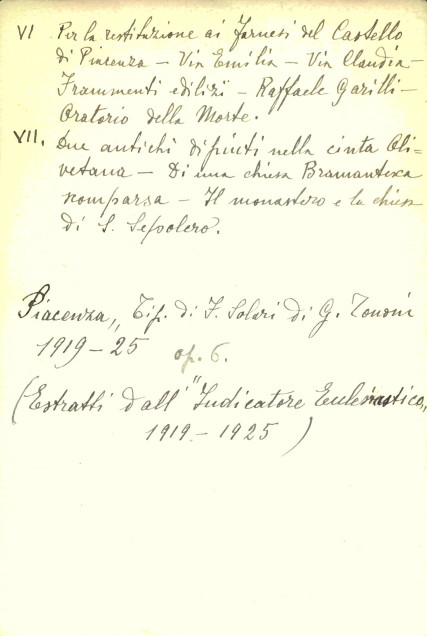 VI Per la restituzione ai Farnesi del Castello
di Piacenza – Via Emilia – Via Claudia –
Frammenti edilizi – Raffaele Garilli –
Oratorio della Morte.
VII. Due antichi dipinti nella cinta Oli=
vetana – Di una chiesa Bramantesca
scomparsa – Il monastero e la chiesa
di S. Sepolcro.
Piacenza, Tip. di F. Solari di G. Tononi
1919–25 op. 6.
(Estratti dall' "Indicatore Ecclesiastico,,
1919–1925)